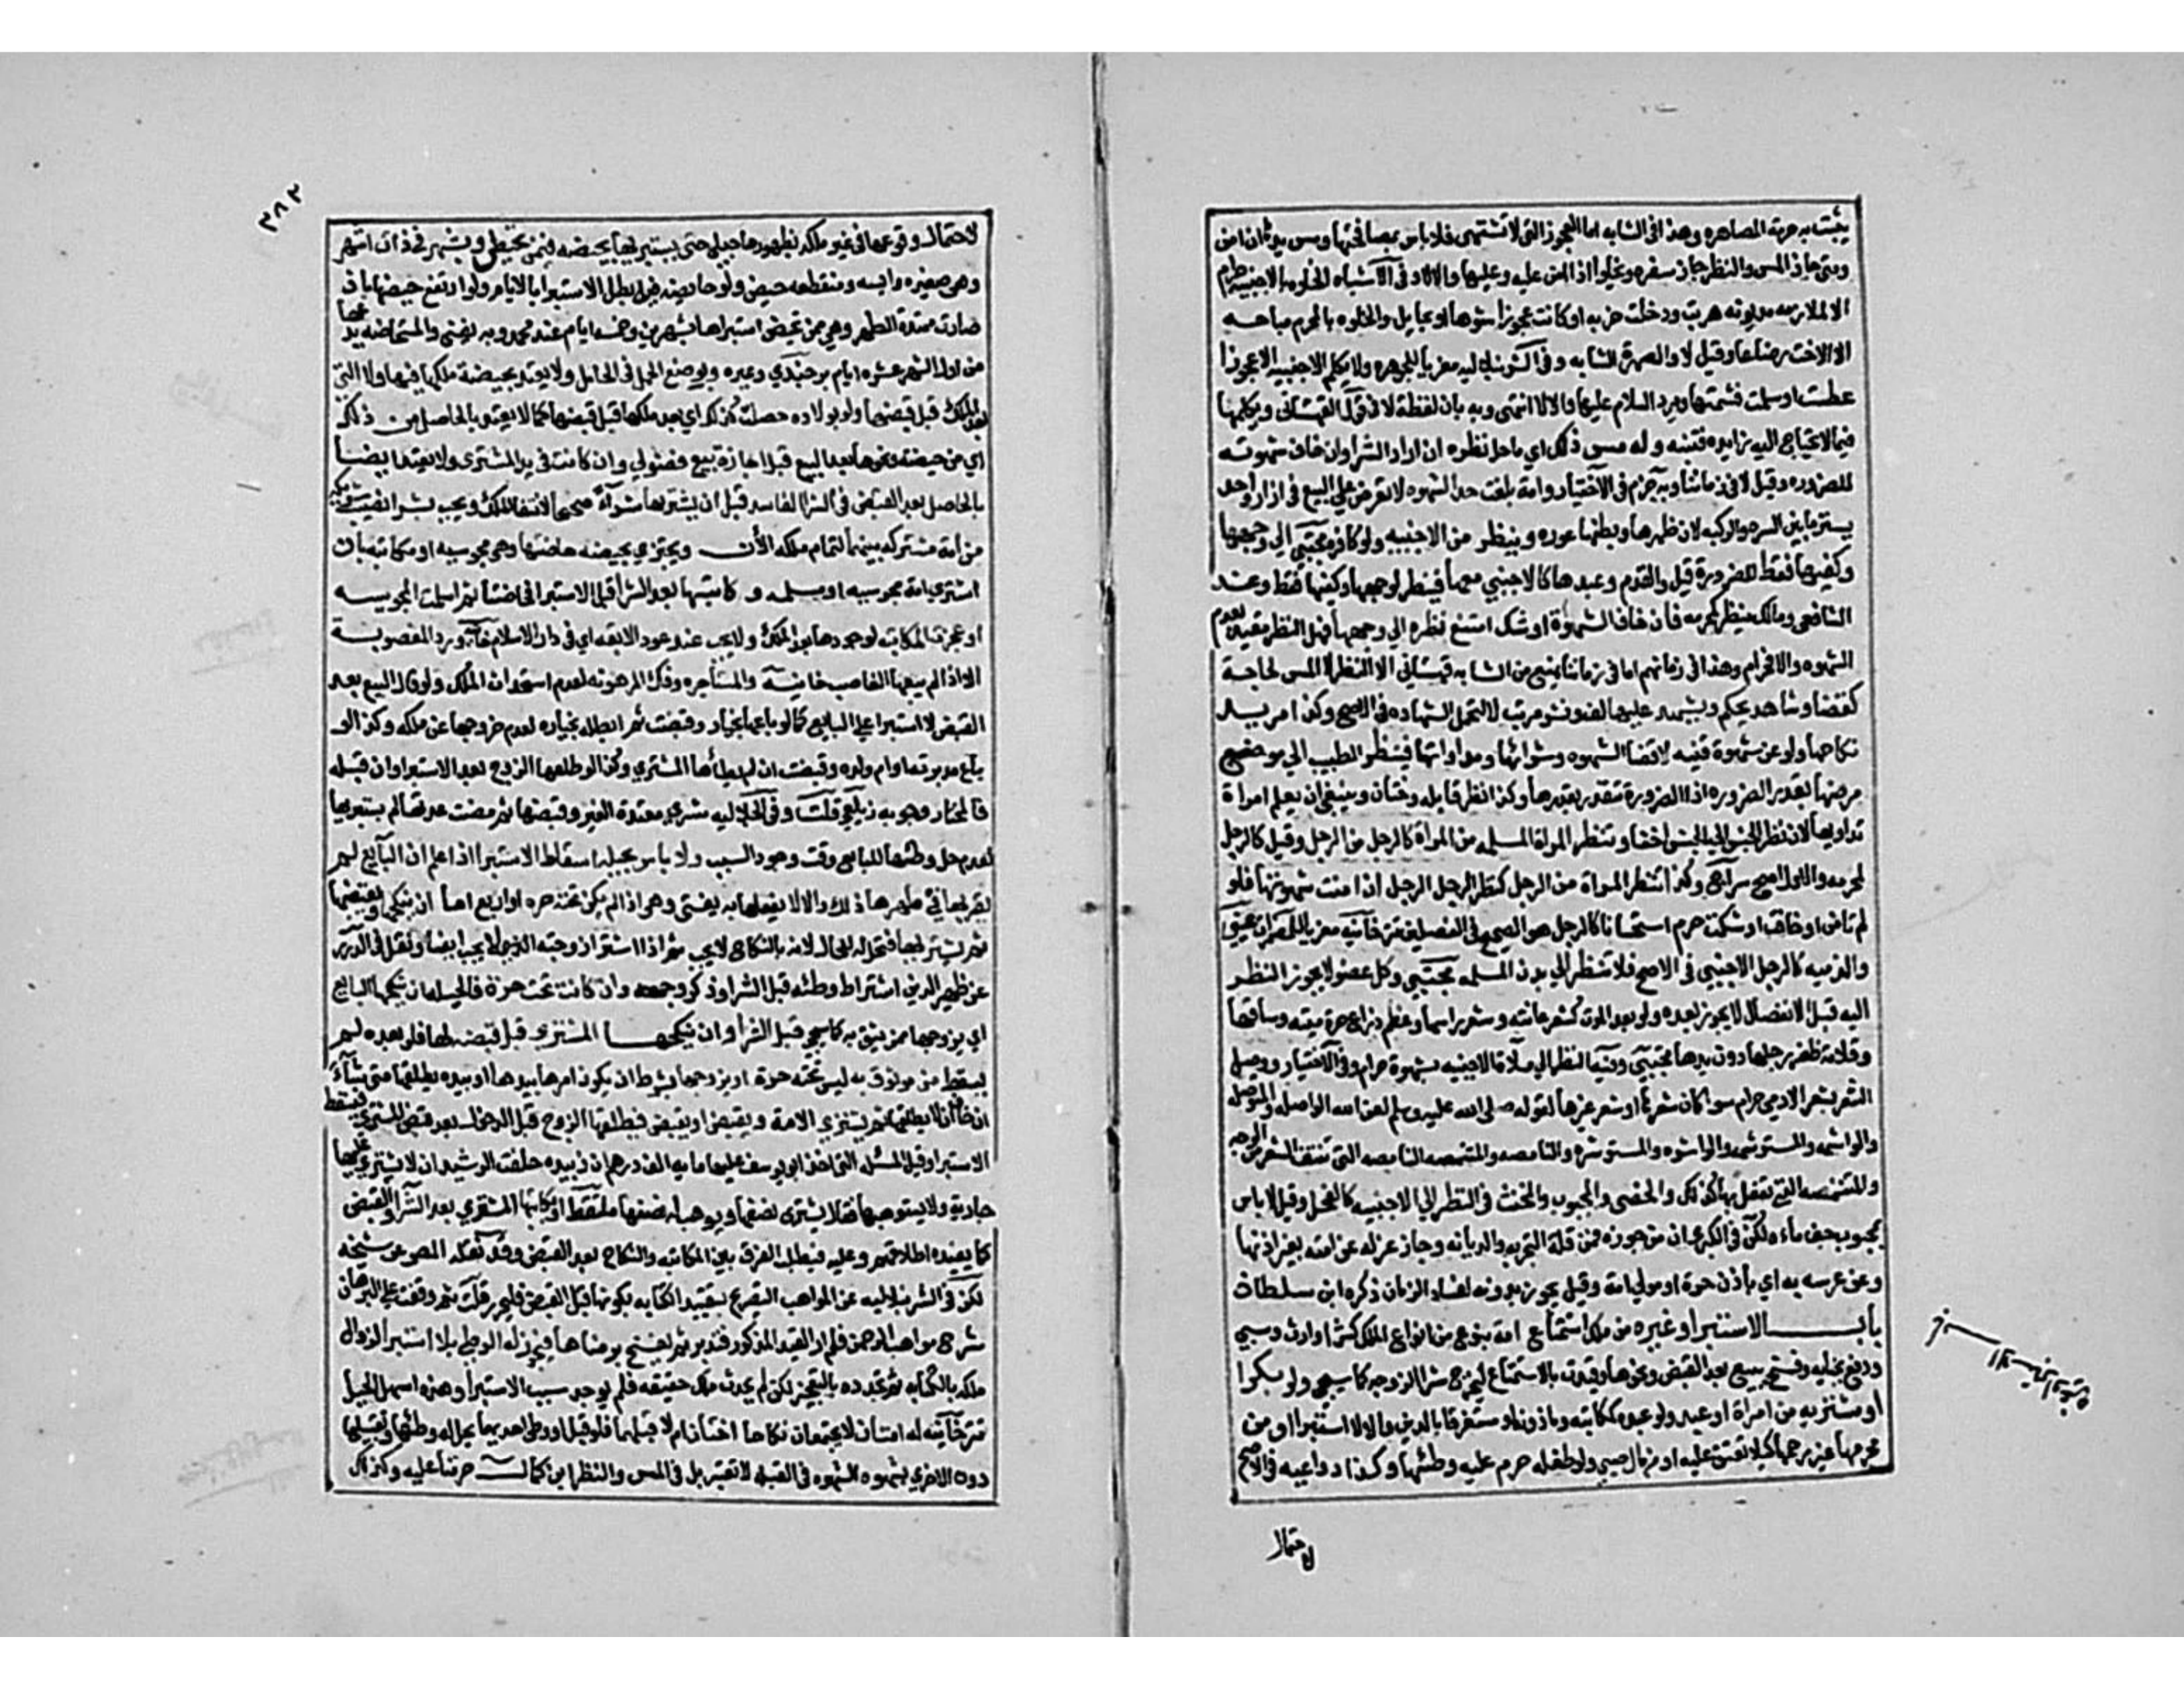 يثبت به حرمة المصاهره وهذا في الشابه اما العجوز التي لا تشتهى فلا باس بمصافحتها ومس يدها ان امن
ومتى جاز المس والنظر جاز سفره ويخلوا اذا امن عليه وعليها والالا وفي الاشباه الخلوه بالاجنبيه حرام
الا لملازمه مديونه هربت ودخلت خربه او كانت عجوزا شوها او بحايل والخلوه بالمحرم مباحه
الا الاخت رضاعا وقيل لا والصهرة الشابه وفي الشرنبلاليه معزيا للجوهره ولا يكلم الاجنبيه الا عجوزا
عطست او سلمت فيشمتها ويرد السلام عليها والالا انتهى وبه بان لفظة لا في قول القهستاني ويكلمها
فيما لا يحتاج اليه زايده فتنبه وله مس ذلك اي ما حل نظره ان اراد الشرا وان خاف شهوته
للضروره وقيل لا في زماننا وبه جزم في الاختيار وامة بلغت حد الشهوه لا تعرض على البيع في ازار واحد
يستر ما بين السره والركبه لان ظهرها وبطنها عوره وينظر من الاجنبيه ولو كافره مجتبى الي وجهها
وكفيها فقط للضرورة قيل والقدم وعبدها كالاجنبي معها فينظر لوجهها وكفيها فقط وعند
الشافعي ومالك ينظر كمحرمه فان خاف الشهوة او شك امتنع نظره الي وجهها فحل النظر مقيد بعدم
الشهوه والا فحرام وهذا في زمانهم اما في زماننا فمنع من الشابه قهستاني الا النظر لا المس لحاجة
كقضا وشاهد يحكم ويشهد عليها لف ونشر مرتب لا لتحمل الشهاده في الاصح وكذا مريد
نكاحها ولو عن شهوة فنيه لا قضا الشهوه وشرائها ومداواتها فينظر الطبيب الي موضع
مرضها بقدر الضروره اذ الضرورة تتقدر بقدرها وكذا نظر قابله وختان وينبغي ان يعلم امراة
تداويها لان نظر الجنس الي الجنس اخف وتنظر المراة المسلمه من المراة كالرجل من الرجل وقيل كالرجل
لمحرمه والاول اصح سراج وكذا تنظر المراة من الرجل كنظر الرجل الرجل اذا امنت شهوتها فلو
لم تامن او خافت او شكت حرم استحسانا كالرجل هو الصحيح في الفصلين تترخانيه معزيا للمضمرات
والذميه كالرجل الاجنبي في الاصح فلا تنظر الي بدن المسلمه مجتبي وكل عضو لا يجوز النظر
اليه قبل الانفصال لا يجوز بعده ولو بعد الموت كشعر عانته وشعر راسها وعظم ذراع حرة ميته وساقها
وقلامة ظفر رجلها دون يدها مجتبي وفيه النظر الي ملاءة الاجنبيه بشهوة حرام وفي الاختيار ووصل
الشعر بشعر الادمي حرام سوا كان شعرها او شعر غيرها لقوله صلى الله عليه وسلم لعن الله الواصله والموصله
والواشمه والمستوشمه والواشره والمستوشره والنامصه والمتنمصه النامصه التي تنتف الشعر من الوجه
والمتنمصه التي يفعل بها ذلك والخصي والمجبوب والمخنث في النظر الي الاجنبيه كالفحل وقيل لا باس
بمجبوب جف ماءه لكن في الكبرى ان من جوزه فمن قلة التجربه والديانه وجاز عزله عن امته بغير اذنها
وعن عرسه به اي باذن حرة او مولي امة وقيل يجوز بدونه لفساد الزمان ذكره ابن سلطان
باب الاستبرا وغيره من ملك استمتاع امة بنوع من انواع الملك كشرا وارث وسبي
ودفع جنايه وفسخ بيع بعد القبض ونحوها وقيدت بالاستمتاع ليخرج شرا الزوجه كما سيجي ولو بكرا
او مشتريه من امراة او عبد ولو عبده كمكاتبه وماذونه لو مستغرقا بالدين والالا استبرا او من
محرمها غير رحمها كيلا تعتق عليه او من مال صبي ولو طفله حرم عليه وطئها وكذا دواعيه في الاصح
لاحتمال
٣٨٣
لاحتمال وقوعها في غير ملكه بظهورها حبلي حتى يستبريها بحيضه فيمن تحيض وبشهر في ذات اشهر
وهي صغيره وايسه ومنقطعه حيض ولو حاضت فيه بطل الاستبرا بالايام ولو ارتفع حيضها بان
صارت ممتدة الطهر وهي ممن تحيض استبراها بشهرين وخمسه ايام عند محمد وبه يفتى والمستحاضه يدعها
من اول الشهر عشرة ايام برجندي وغيره وبوضع الحمل في الحامل ولا يعتد بحيضة ملكها فيها ولا التي
بعد الملك قبل قبضها ولو بولاده حصلت كذلك اي بعد ملكها قبل قبضها كما لا يعتد بالحاصل من ذلك
اي من حيضة ونحوها بعد البيع قبل اجازة بيع فضولي وان كانت في يد المشتري ولا يعتد ايضا
بالحاصل بعد القبض في الشرا الفاسد قبل ان يشتريها شراء صحيحا لانتفا الملك ويجب بشرا نصيب شريكه
من امة مشتركه بينهما لتمام ملكه الان ويجتزي بحيضه حاضتها وهي مجوسيه او مكاتبه بان
اشترى امة مجوسيه او مسلمه وكاتبها بعد الشرا قبل الاستبرا فحاضتا ثم اسلمت المجوسيه
او عجزت المكاتبه لوجودها بعد الملك ولا يجب عند عود الابقه اي في دار الاسلام خانيه ورد المغصوبة
الا اذا لم يبعها الغاصب خانية والمستاجره وفك المرهونه لعدم استحداث الملك ولو اقال البيع بعد
القبض لا استبرا علي البايع كما لو باعها بخيار وقبضت ثم ابطله بخياره لعدم خروجها عن ملكه وكذا لو
باع مدبرته او ام ولده وقبضت ان لم يطأها المشتري وكذا لو طلقها الزوج بعد الاستبرا وان قبله
فالمختار وجوبه زيلعي قلت وفي الجلاليه شري معتدة الغير وقبضها ثم مضت عدتها لم يستبريها
لعدم حل وطئها للبايع وقت وجود السبب ولا باس بحيلة اسقاط الاستبرا اذا علم ان البايع لم
يقربها في طهرها ذلك والالا يفعلها به يفتى وهي اذا لم يكن تحته حره او اربع اماء ان ينكحها ويقبضها
ثم يشتريها فتحل له للحال لانه بالنكاح لا يجب ثم اذا اشترى زوجته لا يجب ايضا ونقل في الدرر
عن ظهير الدين اشتراط وطئه قبل الشرا وذكر وجهه وان كانت تحته حرة فالحيله ان ينكحها البايع
اي يزوجها ممن يثق به كما سيجي قبل الشرا وان ينكحها المشتري قبل قبضه لها فلو بعده لم
يسقط من موثوق به ليس تحته حرة او يزوجها بشرط ان يكون امرها بيدها او بيده يطلقها متى شاء
ان خاف ان لا يطلقها ثم يشتري الامة ويقبض او يقبض فيطلقها الزوج قبل الدخول بعد قبض المشتري فيسقط
الاستبرا وقيل المسئلة التي اخذ ابو يوسف عليها ماية الف درهم ان زبيده حلفت الرشيد ان لا يشتري عليها
جارية ولا يستوهبها فقال يشتري نصفها ويوهب له نصفها ملتقط او يكاتبها المشتري بعد الشرا والقبض
كما يفيده اطلاقهم وعليه فيطلب الفرق بين المكاتبه والنكاح بعد القبض وقد نقله المص عن شيخه
لكن في الشرنبلاليه عن المواهب التصريح بتقييد الكتابه بكونها قبل القبض فليحرر قلت ثم وقفت علي البرهان
شرح مواهب الرحمن فلم ار القيد المذكور فتدبر ثم يفسخ برضاها فيجوز له الوطي بلا استبرا لزوال
ملكه بالكتابه ثم تجدده بالتعجيز لكن لم يحدث ملك حقيقه فلم يوجد سبب الاستبرا وهذه اسهل الحيل
تترخانيه له امتان لا يجتمعان نكاحا اختان ام لا قبلهما فلو قبل او وطي احديهما يحل له وطئها وتقبيلها
دون الاخري بشهوه الشهوه في القبله لا تعتبر بل في المس والنظر ابن كمال حرمتا عليه وكذلك